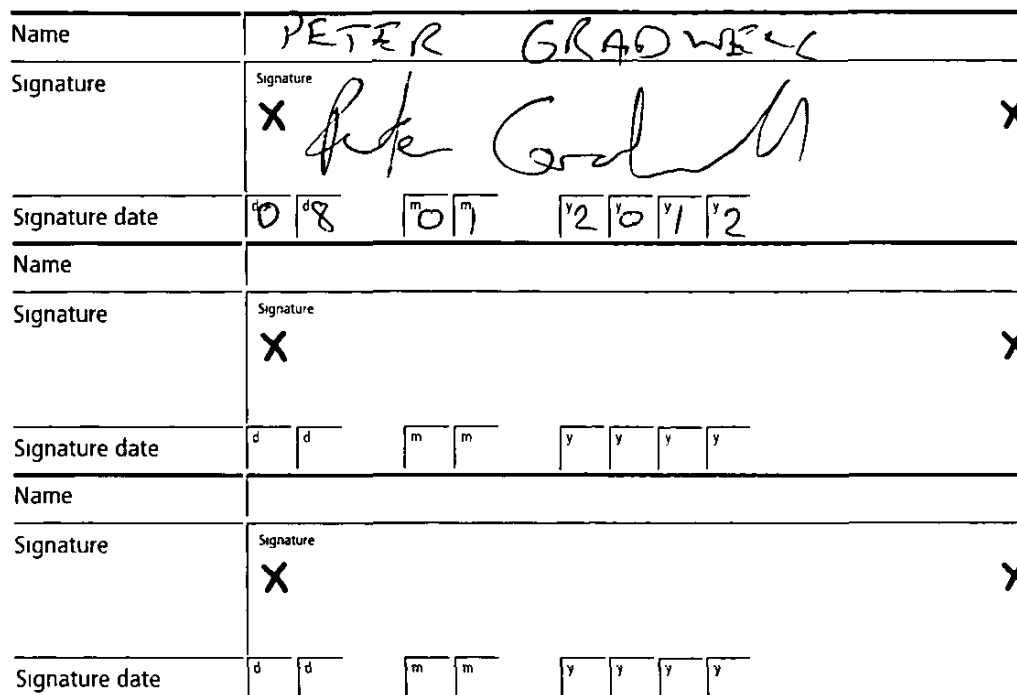 Name PETER GRADWELL
Signature Signature
X Peter Gradwell X
Signature date d0 d8 m0 m1 y2 y0 y1 y2
Name
Signature Signature
X X
Signature date d d m m y y y y
Name
Signature Signature
X X
Signature date d d m m y y y y